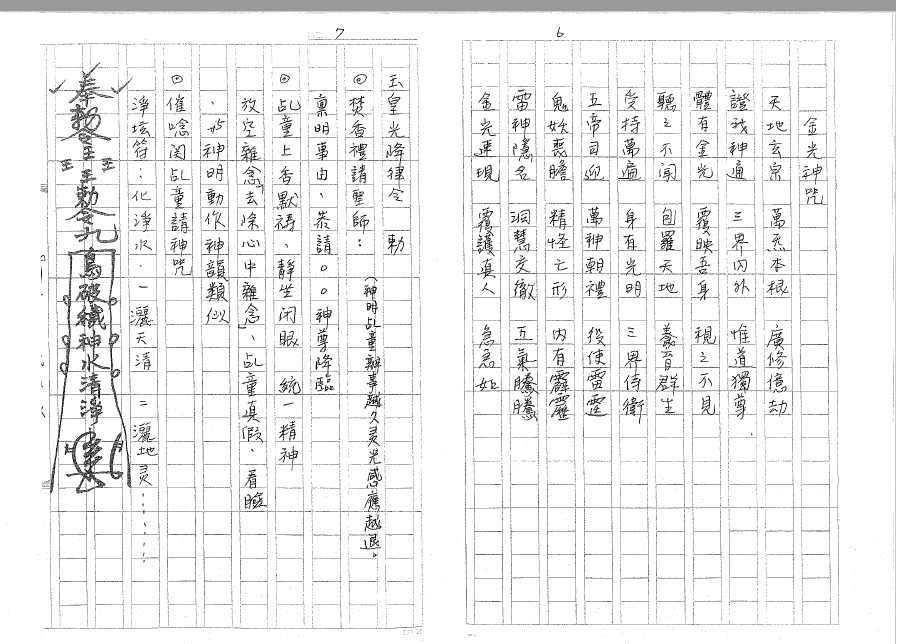 6
金光神咒
天地玄宗 萬炁本根 廣修億劫
證我神通 三界内外 惟道獨尊
體有金光 覆映吾身 視之不見
聽之不聞 包羅天地 養育群生
受持萬遍 身有光明 三界侍衛
五帝司迎 萬神朝禮 役使雷霆
鬼妖喪膽 精怪亡形 内有霹靂
雷神隱名 洞慧交徹 五氣騰騰
金光速現 覆護真人 急急如
7
玉皇光降律令 勅
◎焚香禮請聖師:(神明乩童辦事越久灵光感應越退。
稟明事由、恭請○○神尊降臨
◎乩童上香默禱、静坐闭眼 統一精神
放空雜念「去除心中雜念」、乩童真假、看臉
、 神明動作神韻類似
◎催唸関乩童請神咒
淨坛符:化淨水.一灑天清 二灑地灵......
奉勅令 勅令 破穢神水清淨